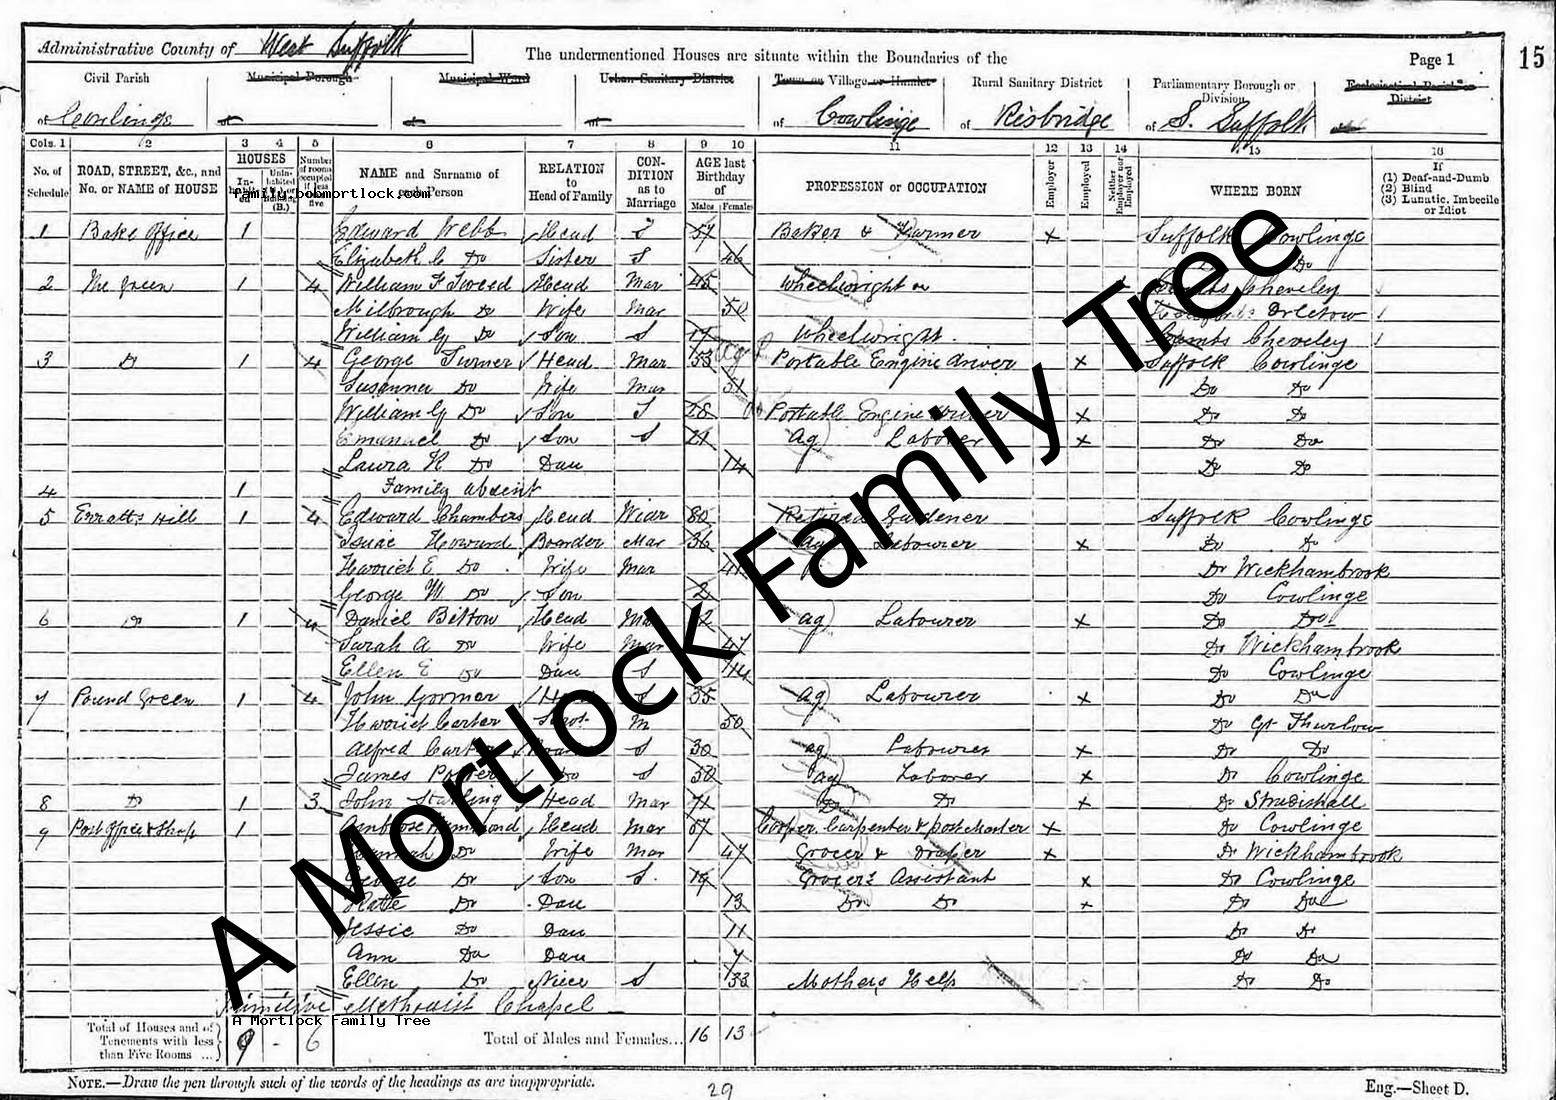 Administrative County of West Suffolk
The undermentioned Houses are situate within the Boundaries of the
Page 1
15
Civil Parish
Municipal Borough
Municipal Ward
Urban Sanitary District
Town or Village or Hamlet
Rural Sanitary District
Parliamentary Borough or Division
Ecclesiastical Parish or District
of Cowlinge
of
of Cowlinge
of Risbridge
of S. Suffolk
Cols. 1 2 3 4 5 6 7 8 9 10 11 12 13 14 15 16
No. of Schedule
ROAD, STREET, &c., and No. or NAME of HOUSE
HOUSES
In-habited
Unin-habited
(B.)
Number of rooms occupied if less than five
NAME and Surname of each Person
RELATION to Head of Family
CON-DITION as to Marriage
AGE last Birthday of
Males Females
PROFESSION or OCCUPATION
Employer
Employed
Neither Employer nor Employed
WHERE BORN
If
(1) Deaf-and-Dumb
(2) Blind
(3) Lunatic, Imbecile or Idiot
family.bobmortlock.com
1 Bake Office 1 Edward Webb Head S 57 Baker & Farmer x Suffolk Cowlinge
Elizabeth C Do Sister S 46 Do Do
2 The Green 1 4 William F Tweed Head Mar 45 Wheelwright x Cambs Cheveley
Milbrough Do Wife Mar 50
William G Do Son S 17 Wheelwright Cambs Cheveley
3 Do 1 4 George Turner Head Mar 53 Portable Engine driver x Suffolk Cowlinge
Susanna Do Wife Mar 51 Do Do
William G Do Son S 28 Portable Engine driver x Do Do
Emanuel Do Son S 21 Ag Laborer x Do Do
Laura K Do Dau 14 Do Do
4 1 Family absent
5 Erratts Hill 1 4 Edward Chambers Head Widr 80 Retired Gardener Suffolk Cowlinge
Isaac Howard Boarder Mar 36 ag Labourer x Do Do
Harriet E Do Wife Mar 41 Do Wickhambrook
George W Do Son 2 Do Cowlinge
6 Do 1 4 Daniel Bitton Head Mar ag Labourer x Do Do
Sarah A Do Wife Mar 47 Do Wickhambrook
Ellen E Do Dau S 14 Do Cowlinge
7 Pound Green 1 4 John Gormer Head S 35 ag Labourer x Do Do
Harriet Carter M 50 Do Gt Thurlow
Alfred Carter S 30 ag Labourer x Do Do
James Do S 50 ag Laborer x Do Cowlinge
8 Do 1 3 John Starling Head Mar 71 Do Do x Do Stradishall
9 Post Office & Shop 1 Ambrose Hammond Head Mar 57 Cooper, Carpenter & postmaster x Do Cowlinge
Hannah Do Wife Mar 47 Grocer & Draper x Do Wickhambrook
George Do Son S. 19 Grocer's Assistant x Do Cowlinge
Do Dau 13 Do Do x Do Do
Jessie Do Dau 11 Do Do
Ann Do Dau 7 Do Do
Ellen Do Niece S 33 Mothers Help Do Do
Primitive Methodist Chapel
A Mortlock Family Tree
Total of Houses and of Tenements with less than Five Rooms ... 9 - 6
Total of Males and Females... 16 13
NOTE.—Draw the pen through such of the words of the headings as are inappropriate.
29
Eng.—Sheet D.
A Mortlock Family Tree